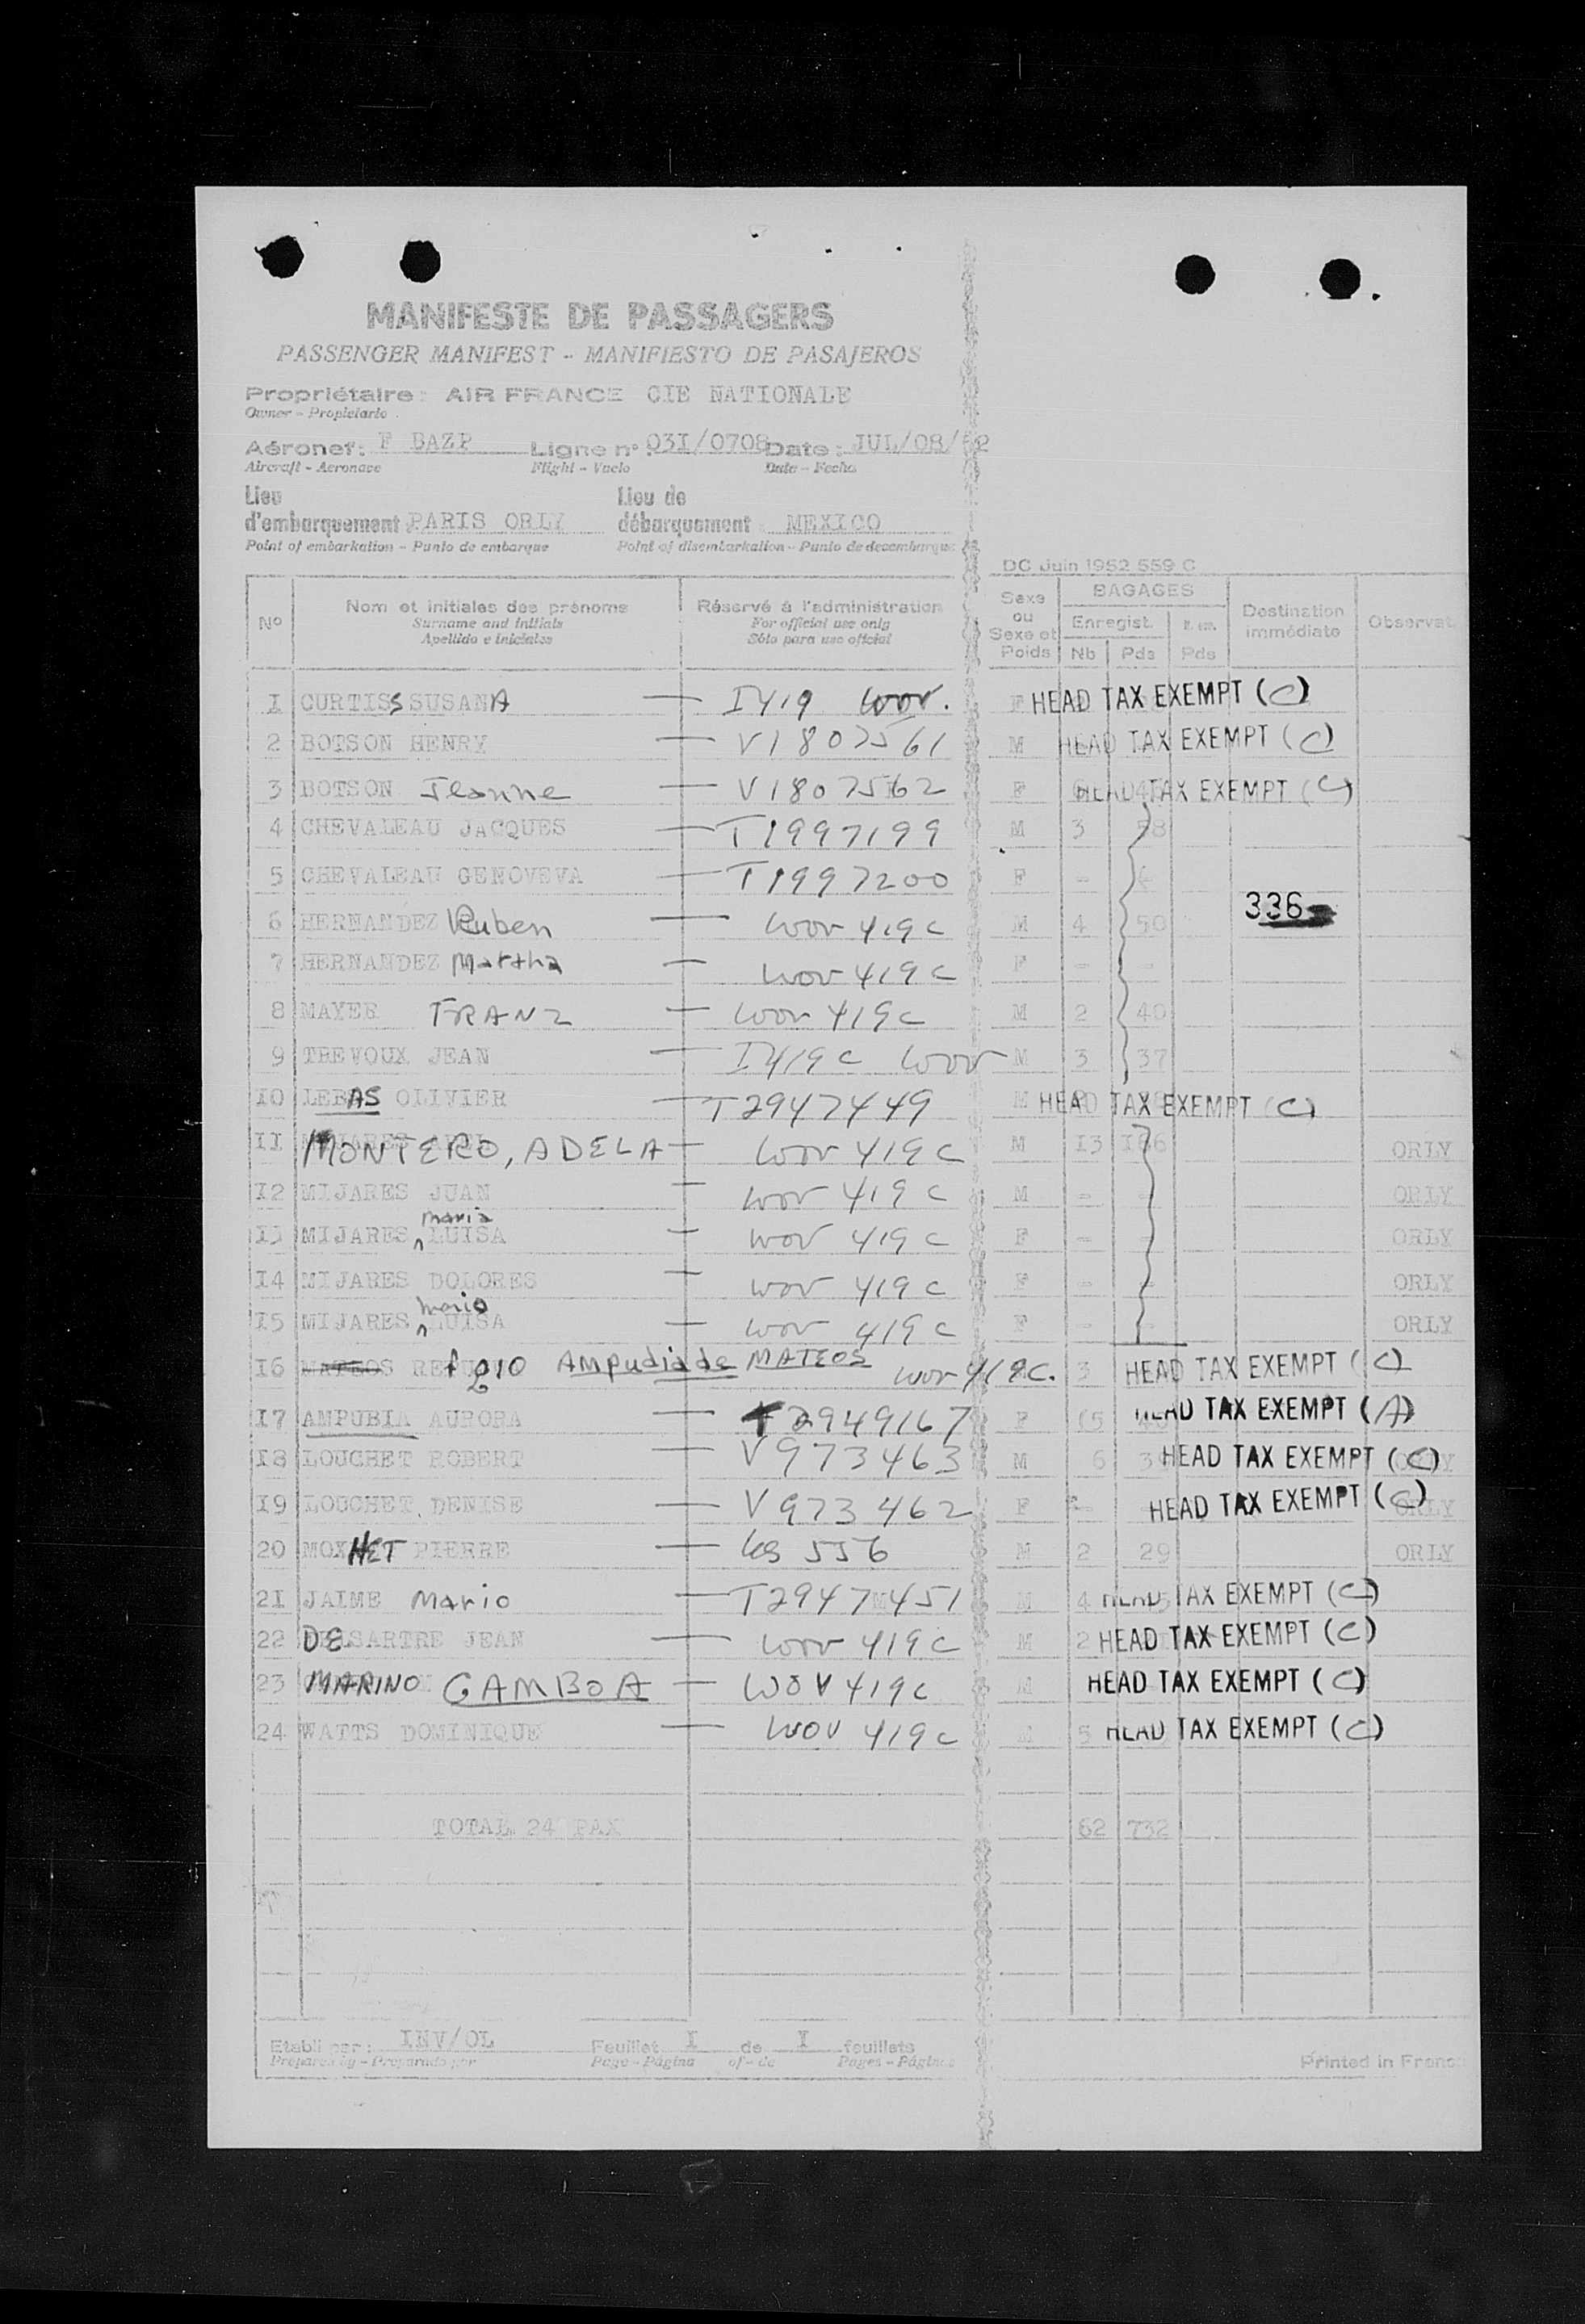 MANIFESTE DE PASSAGERS
PASSENGER MANIFEST - MANIFIESTO DE PASAJEROS
Propriétaire : AIR FRANCE CIE NATIONALE
Owner - Propietario
Aéronef : F BAZP Ligne n° 031/0708 Date : JUL/08/52
Aircraft - Aeronave Flight - Vuelo Date - Fecha
Lieu d'embarquement PARIS ORLY Lieu de débarquement MEXICO
Point of embarkation - Punto de embarque Point of disembarkation - Punto de desembarque
DC Juin 1952 559 C
N° Nom et initiales des prénoms Réservé à l'administration Sexe ou Sexe et Poids BAGAGES Destination immédiate Observat.
Surname and initials For official use only Enregist.
Apellido e iniciales Sólo para uso oficial Nb Pds Pds
I CURTISS SUSANA — I419 wov. F HEAD TAX EXEMPT (C)
2 BOTSON HENRY — V1807561 M HEAD TAX EXEMPT (C)
3 BOTSON Jeanne — V1807562 F HEAD TAX EXEMPT (C)
4 CHEVALEAU JACQUES — T1997199 M 3 58
5 CHEVALEAU GENOVEVA — T1997200 F - -
336
6 HERNANDEZ Ruben — wov 419c M 4 50
7 HERNANDEZ Martha — wov 419c F - -
8 MAYER FRANZ — wov 419c M 2 40
9 TREVOUX JEAN — I419c wov M 3 37
10 LEBAS OLIVIER — T2947449 M HEAD TAX EXEMPT (C)
11 MONTERO, ADELA — wov 419c M 13 186 ORLY
12 MIJARES JUAN — wov 419c M - ORLY
13 MIJARES maria LUISA — wov 419c F - - ORLY
14 MIJARES DOLORES — wov 419c F - - ORLY
15 MIJARES maria LUISA — wov 419c F - - ORLY
16 MATEOS REFUGIO Ampudia de MATEOS wov 419c. 3 HEAD TAX EXEMPT (C)
17 AMPUBIA AURORA — T2949167 F 15 HEAD TAX EXEMPT (A)
18 LOUCHET ROBERT — V973463 M 6 HEAD TAX EXEMPT (C) ORLY
19 LOUCHET DENISE — V973462 F - HEAD TAX EXEMPT (C) ORLY
20 MOXHET PIERRE — 556 M 2 29 ORLY
21 JAIME Mario — T2947451 M 4 HEAD TAX EXEMPT (C)
22 DESARTRE JEAN — wov 419c M 2 HEAD TAX EXEMPT (C)
23 MARINO GAMBOA — wov 419c M HEAD TAX EXEMPT (C)
24 WATTS DOMINIQUE — wov 419c M 5 HEAD TAX EXEMPT (C)
TOTAL 24 PAX 62 732
Etabli par : INV/OL Feuillet I de I feuillets
Prepared by - Preparado por Page - Página of - de Pages - Páginas
Printed in France